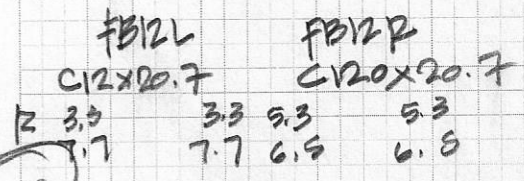 FB12L FB12R
C12x20.7 C120x20.7
R 3.3 3.3 5.3 5.3
7.7 7.7 6.8 6.8